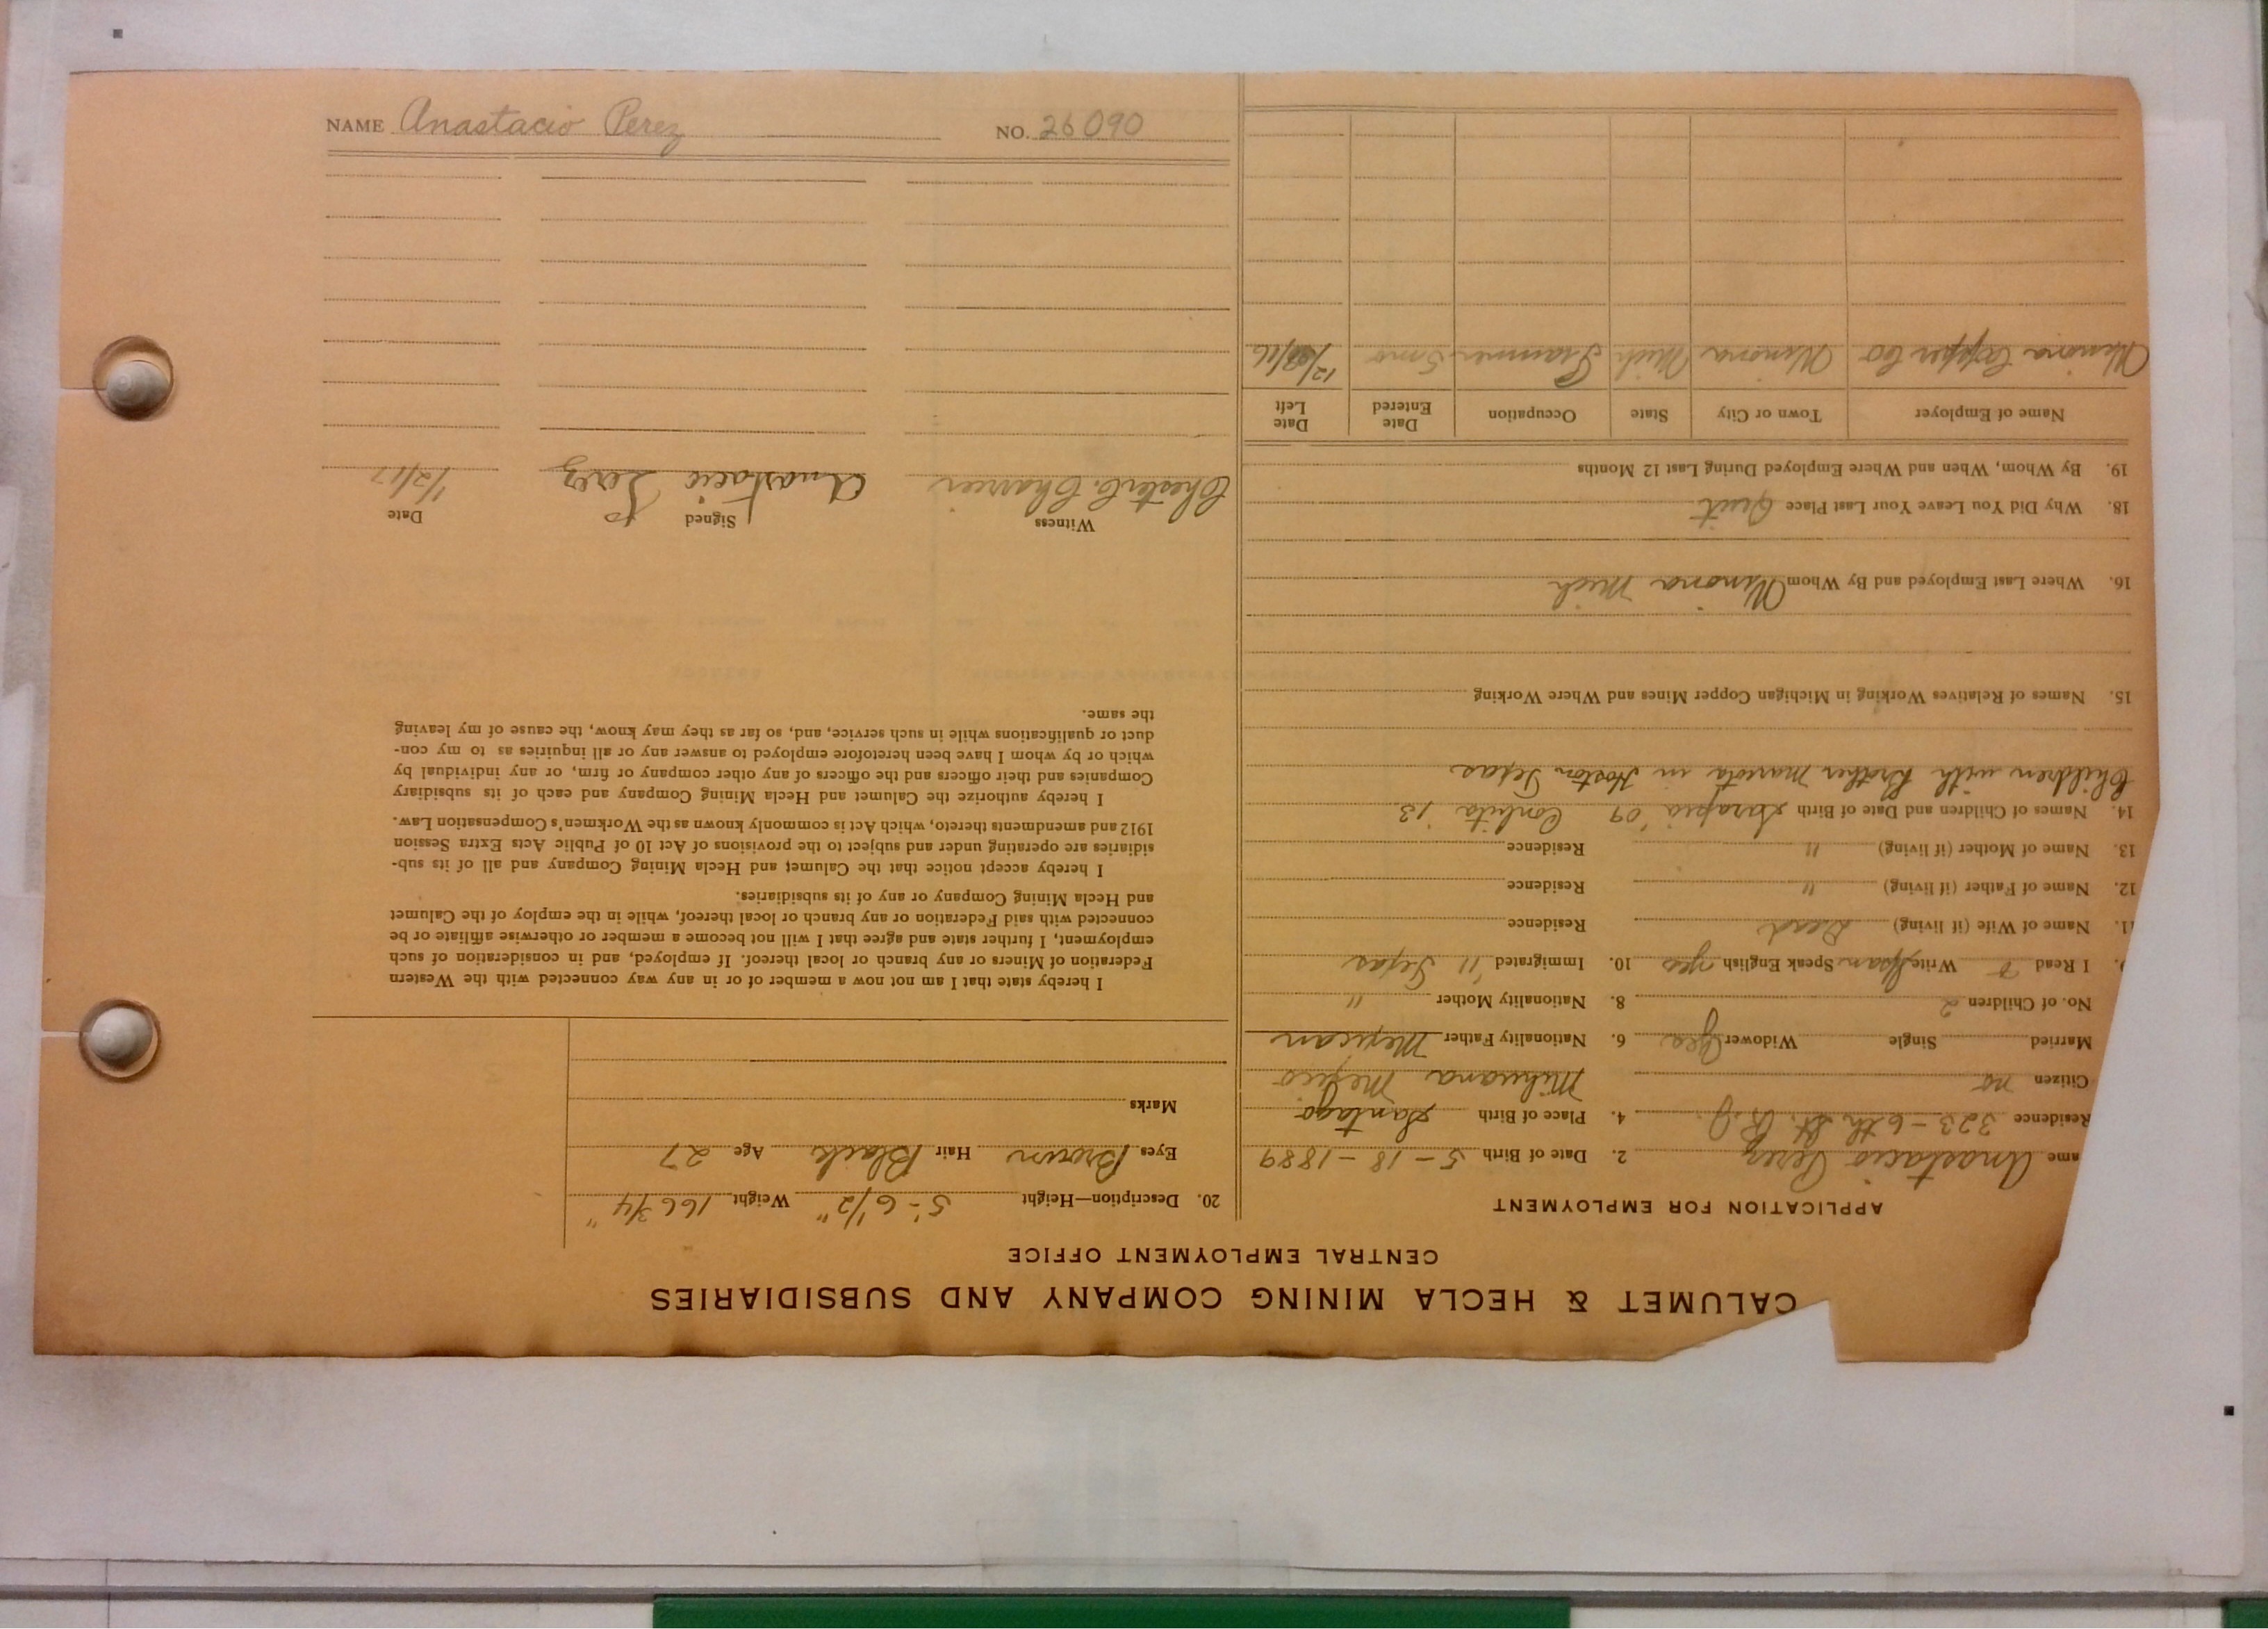 NAME Anastacio Perez NO. 26090
CALUMET & HECLA MINING COMPANY AND SUBSIDIARIES
CENTRAL EMPLOYMENT OFFICE
APPLICATION FOR EMPLOYMENT
ame Anastacio Perez 2. Date of Birth 5-18-1889
Residence 323-6th St. R.J. 4. Place of Birth Santago
Citizen no Mexico
Married Single Widower yes 6. Nationality Father Mexican
No. of Children 2 8. Nationality Mother "
9. I Read Write Span Speak English yes 10. Immigrated '11 Texas
11. Name of Wife (if living) Dead Residence
12. Name of Father (if living) " Residence
13. Name of Mother (if living) " Residence
14. Names of Children and Date of Birth '09 '13
Children with Brother in Hoston Texas
15. Names of Relatives Working in Michigan Copper Mines and Where Working
16. Where Last Employed and By Whom Winona Mich
18. Why Did You Leave Your Last Place Quit
19. By Whom, When and Where Employed During Last 12 Months
Name of Employer Town or City State Occupation Date Entered Date Left
Winona Copper Co Winona Mich Trammer 5 mo
20. Description—Height 5'-6 1/2" Weight 166 3/4"
Eyes Brown Hair Black Age 27
Marks
I hereby state that I am not now a member of or in any way connected with the Western
Federation of Miners or any branch or local thereof. If employed, and in consideration of such
employment, I further state and agree that I will not become a member or otherwise affiliate or be
connected with said Federation or any branch or local thereof, while in the employ of the Calumet
and Hecla Mining Company or any of its subsidiaries.
I hereby accept notice that the Calumet and Hecla Mining Company and all of its sub-
sidiaries are operating under and subject to the provisions of Act 10 of Public Acts Extra Session
1912 and amendments thereto, which Act is commonly known as the Workmen's Compensation Law.
I hereby authorize the Calumet and Hecla Mining Company and each of its subsidiary
Companies and their officers and the officers of any other company or firm, or any individual by
which or by whom I have been heretofore employed to answer any or all inquiries as to my con-
duct or qualifications while in such service, and, so far as they may know, the cause of my leaving
the same.
Witness Signed Date
Chester C. Anastacio Perez 1/2/17